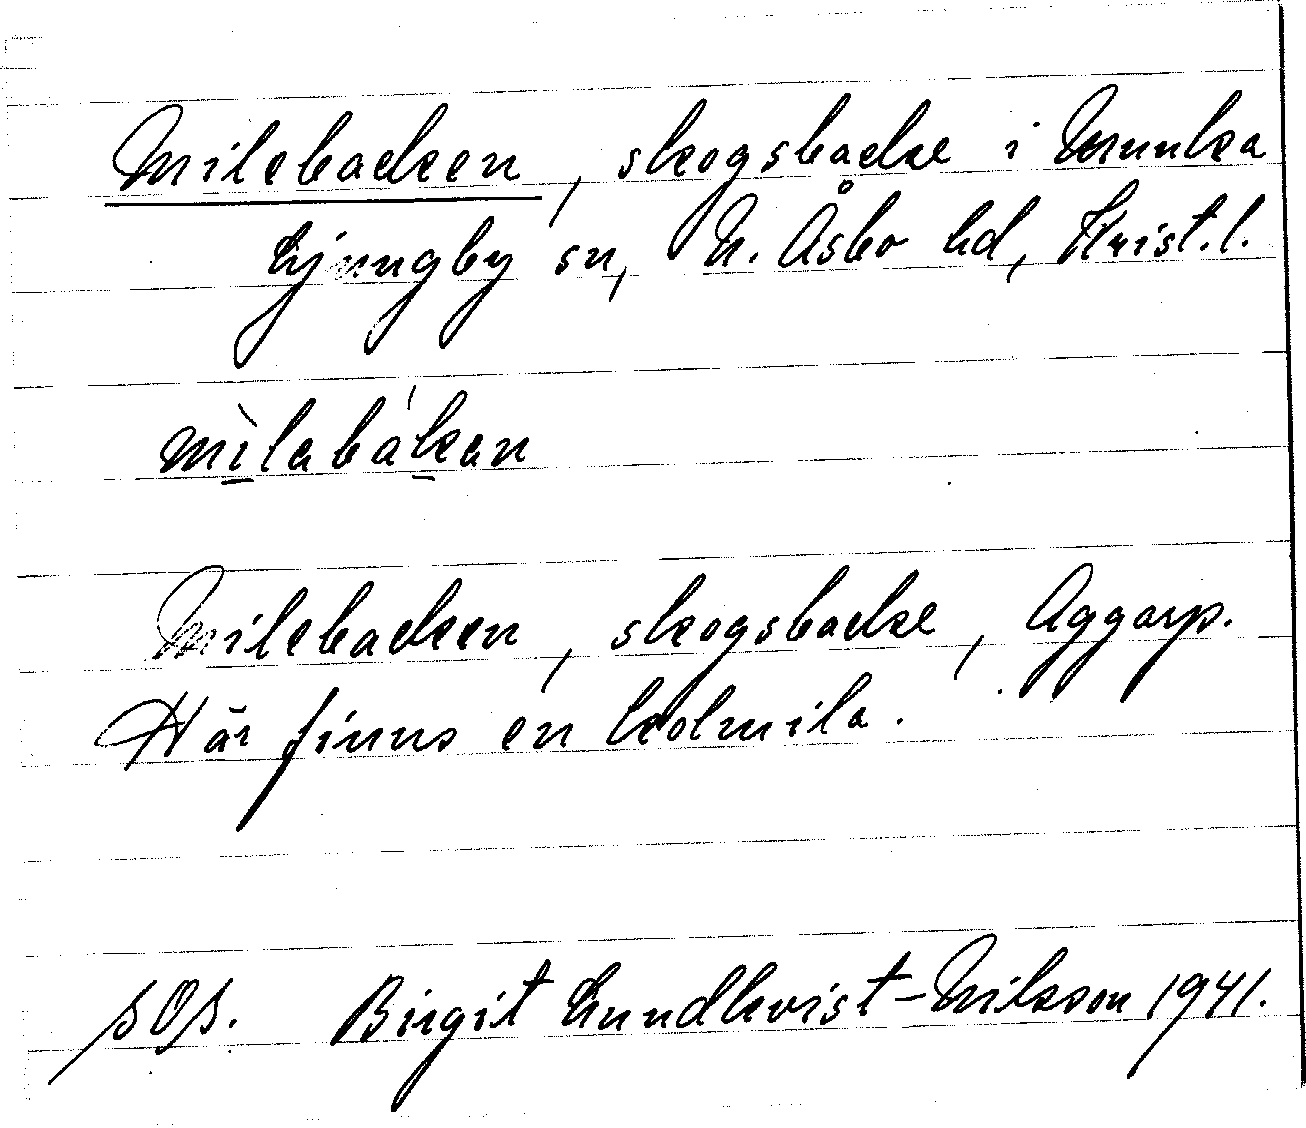 Milebacken, skogsbacke i Munka
Ljungby sn, N. Åsbo hd, Krist.l.
mìlabákan
Milebacken, skogsbacke, Aggarp.
Här finns en kolmila.
SOS. Birgit Lundkvist-Nilsson 1941.